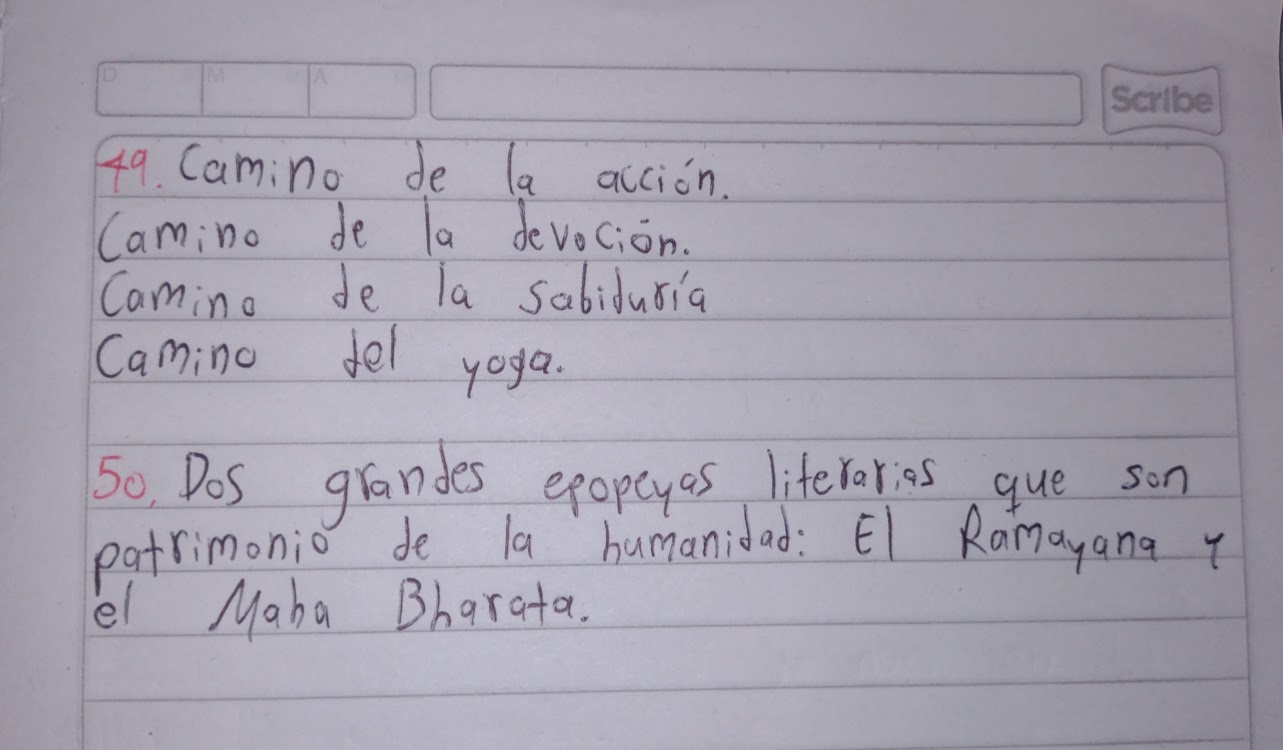 D M A
Scribe
49. Camino de la acción.
Camino de la devoción.
Camino de la sabiduría
Camino del yoga.
50. Dos grandes epopeyas literarias que son
patrimonio de la humanidad: El Ramayana y
el Maha Bharata.